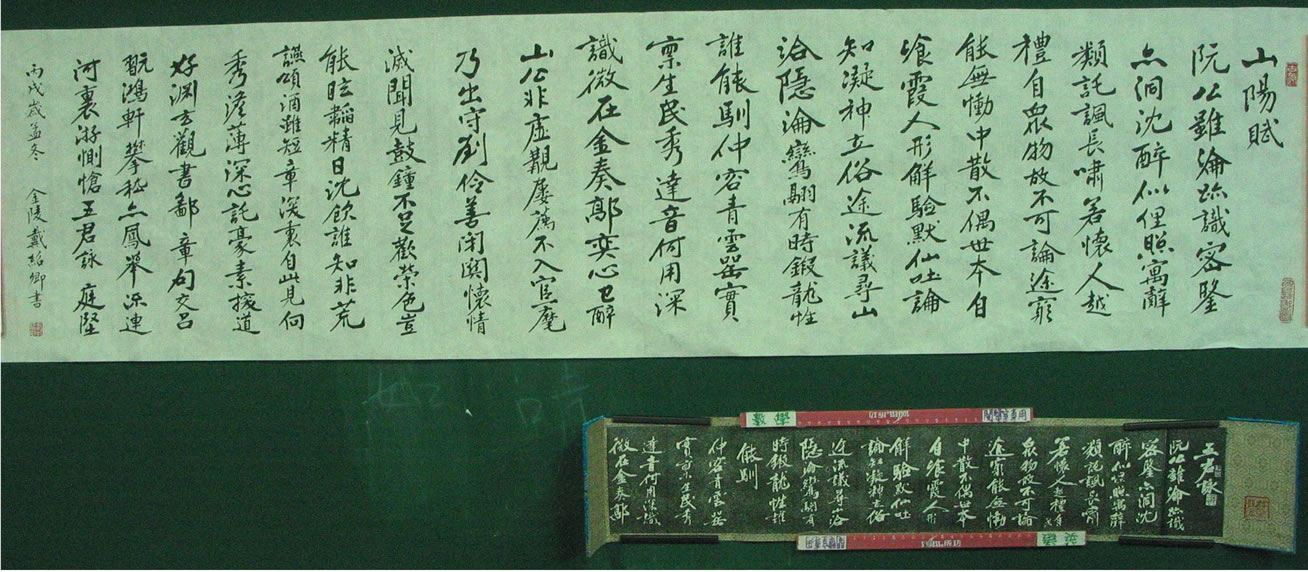 山陽賦
阮公雖淪跡識密鑒
亦洞沈醉似俚照寓辭
類託諷長嘯若懷人越
禮自眾物故不可論途窮
能無慟中散不偶世本自
飡霞人形解驗默仙吐論
知凝神立俗迕流議尋山
洽隱淪鸞翮有時鎩龍性
誰能馴仲容青雲器實
稟生民秀達音何用深
識微在金奏郭奕心已醉
山公非虛覯屢薦不入官麾
乃出守劉伶善閉關懷情
滅聞見鼓鐘不足歡榮色豈
能眩韜精日沈飲誰知非荒
讌頌酒雖短章深衷自此見向
秀澹薄深心託豪素探道
好淵玄觀書鄙章句交呂
既鴻軒攀嵇亦鳳舉流連
河裏游惻愴五君詠 庭堅
丙戌歲孟冬 金陵戴紹卿書
五君詠
阮公雖淪跡識
密鑒亦洞沈
醉似俚照寓辭
類託諷長嘯
若懷人越禮自
眾物故不可論
途窮能無慟
中散不偶世本
自飡霞人形
解驗默仙吐
論知凝神立俗
迕流議尋山洽
隱淪鸞翮有
時鎩龍性誰
能馴
仲容青雲器
實稟生民秀
達音何用深識
微在金奏郭